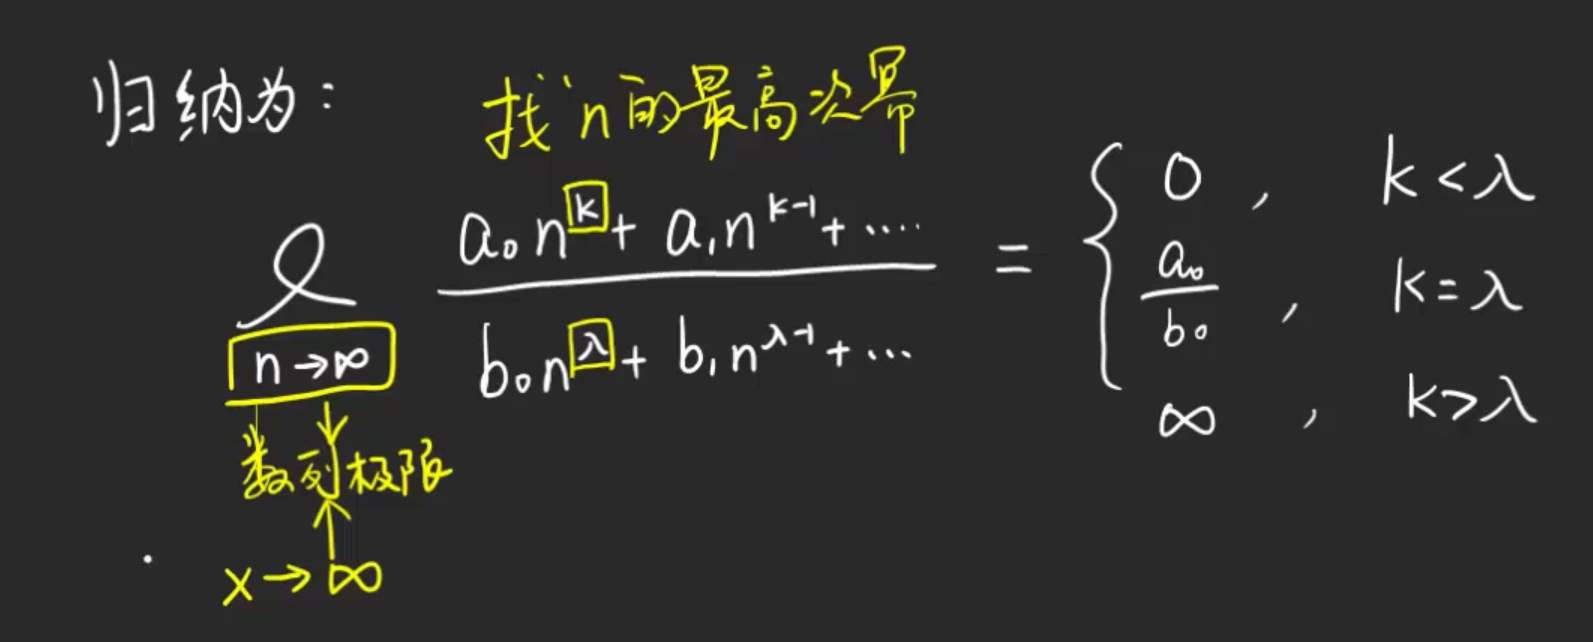 归纳为： 找n的最高次幂
ℓ a₀n^k + a₁n^(k-1) + ....
n→∞ b₀n^λ + b₁n^(λ-1) + ...
= { 0 , k<λ
a₀/b₀ , k=λ
∞ , k>λ
数列极限
x→∞